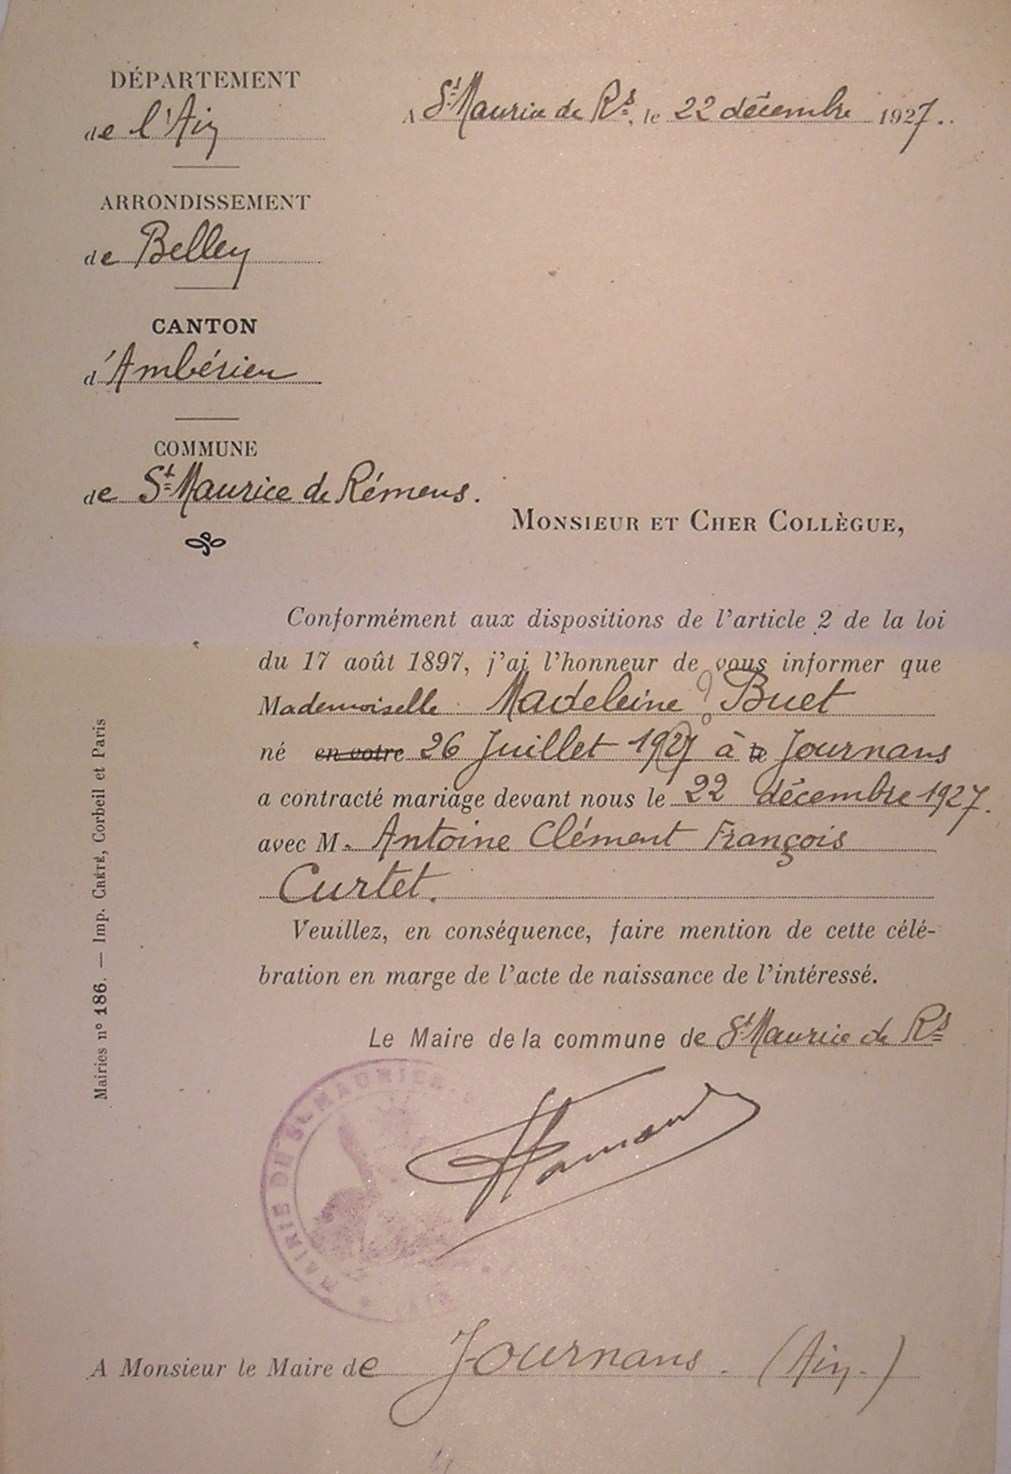 DÉPARTEMENT
de l'Ain
A St Maurice de Rs, le 22 décembre 1927.
ARRONDISSEMENT
de Belley
CANTON
d'Ambérieu
COMMUNE
de St Maurice de Rémens.
MONSIEUR ET CHER COLLÈGUE,
Conformément aux dispositions de l'article 2 de la loi
du 17 août 1897, j'ai l'honneur de vous informer que
Mademoiselle Madeleine ? Buet
né en votre 26 Juillet 1927 à le Journans
a contracté mariage devant nous le 22 décembre 1927.
avec M. Antoine Clément François
Curtet.
Veuillez, en conséquence, faire mention de cette célé-
bration en marge de l'acte de naissance de l'intéressé.
Le Maire de la commune de St Maurice de Rs
MAIRIE DE ST MAURICE
A Monsieur le Maire de Journans. (Ain.)
Mairies n° 186. — Imp. CRÉTÉ, Corbeil et Paris